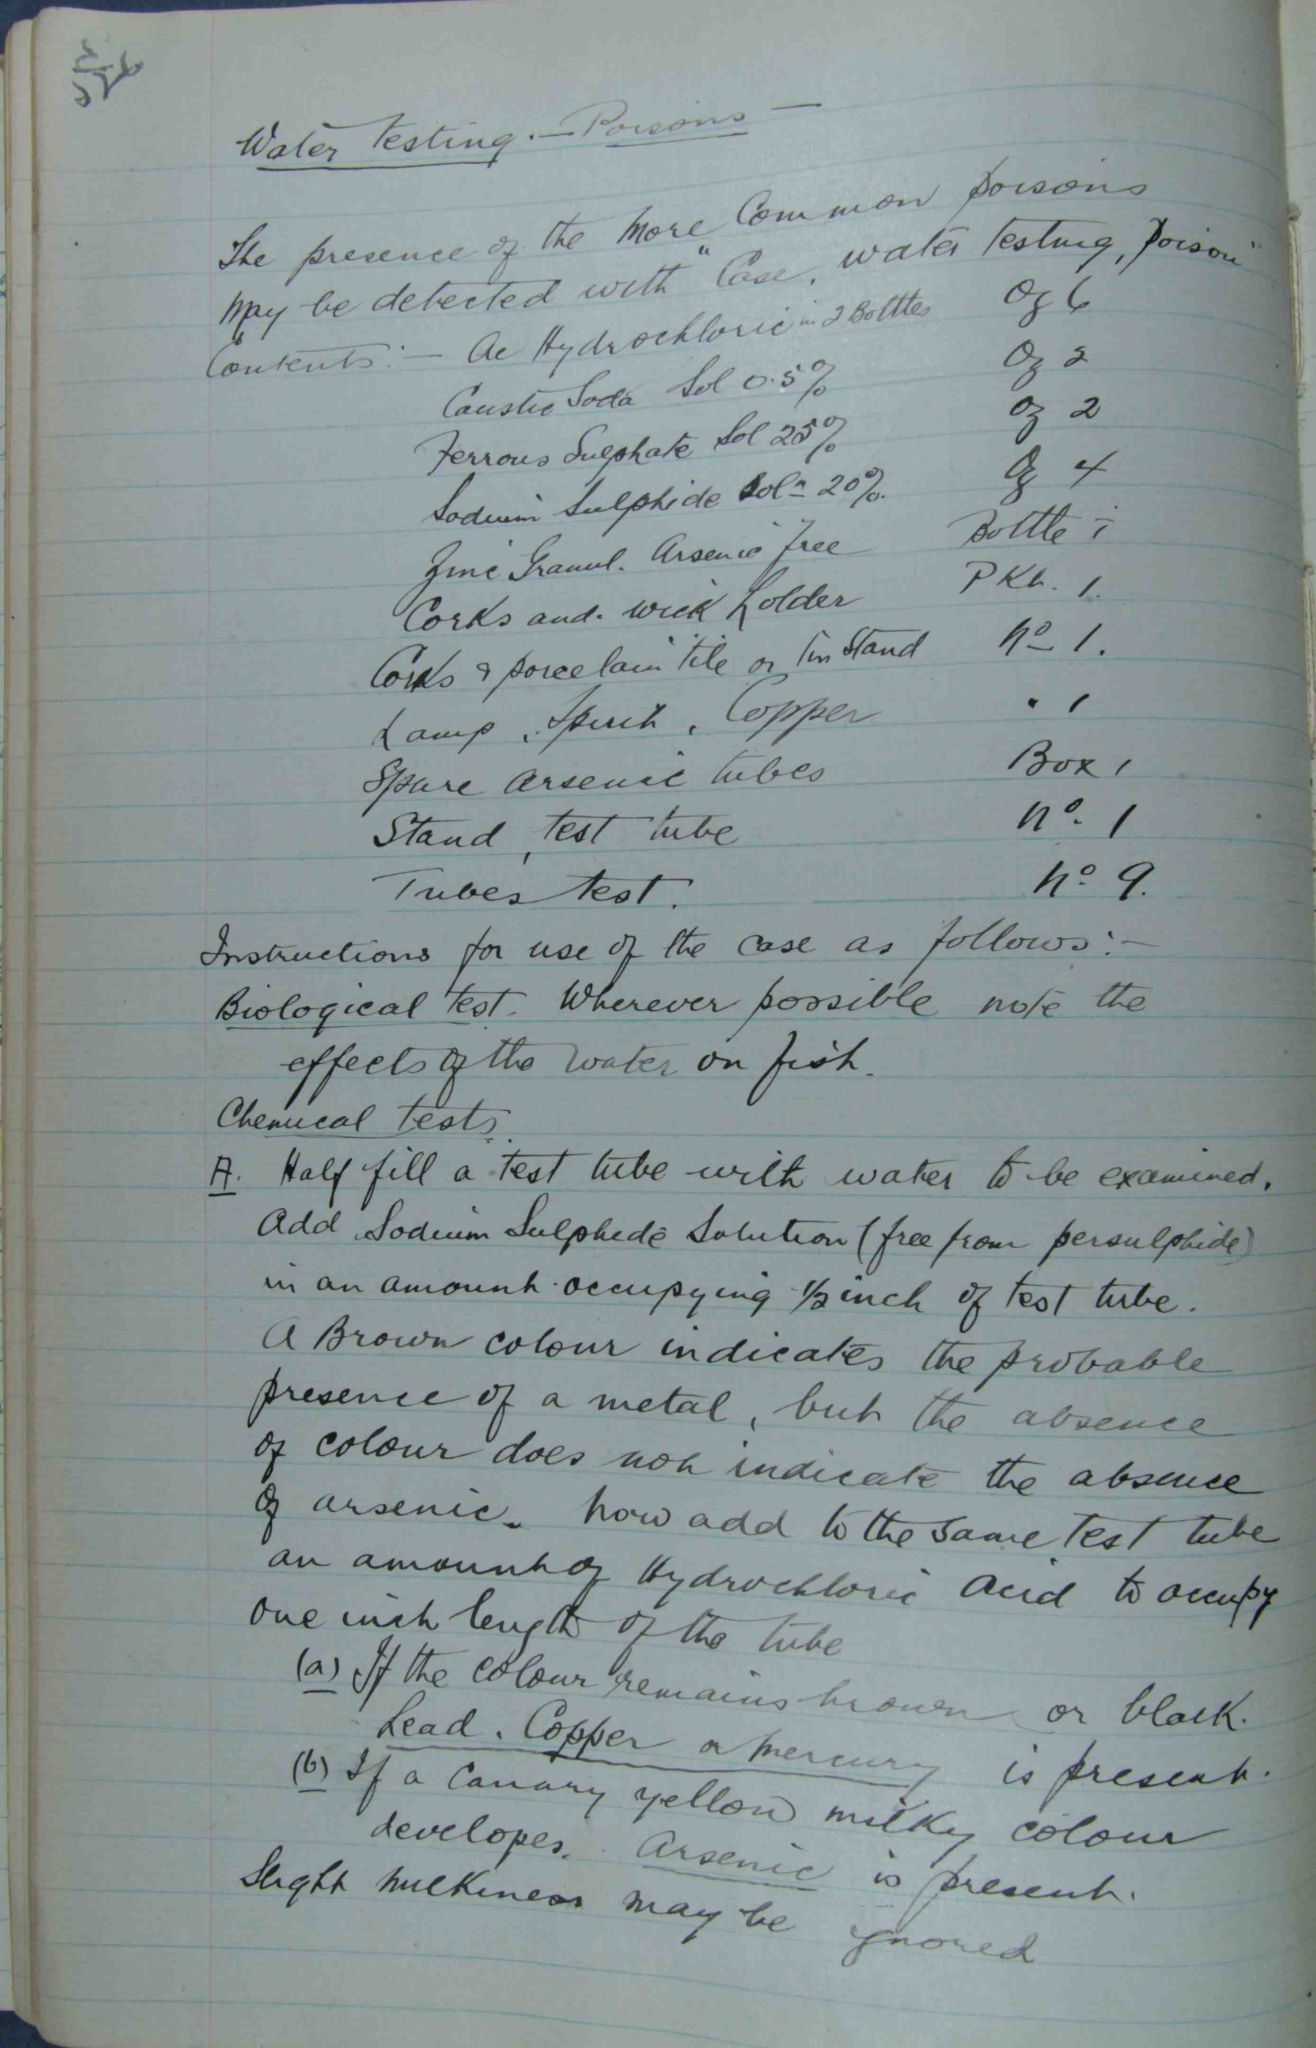 Water testing. — Poisons —
The presence of the More Common poisons
May be detected with "Case, water testing, poison"
Contents: — Ac Hydrochloric in 2 Bottles Oz 6
Caustic Soda Sol 0.5% Oz 2
Ferrous Sulphate Sol 25% Oz 2
Sodium Sulphide Soln 20%. Oz 4
Zinc Granul. Arsenic free Bottle i
Corks and. wick holder Pkt. 1.
Corks & porcelain tile on tin Stand No 1.
Lamp, Spirit, Copper " 1
Spare arsenic tubes Box 1
Stand, test tube No. 1
Tubes test. No 9.
Instructions for use of the case as follows: —
Biological test. Wherever possible note the
effects of the water on fish.
Chemical tests.
A. Half fill a test tube with water to be examined.
Add Sodium Sulphide Solution (free from persulphide)
in an amount occupying 1/2 inch of test tube.
A Brown colour indicates the probable
presence of a metal, but the absence
of colour does not indicate the absence
of arsenic. Now add to the same test tube
an amount of Hydrochloric Acid to occupy
one inch length of the tube
(a) If the colour remains brown or black.
Lead, Copper or Mercury is present.
(b) If a Canary yellow milky colour
developes. Arsenic is present.
Slight milkiness may be ignored